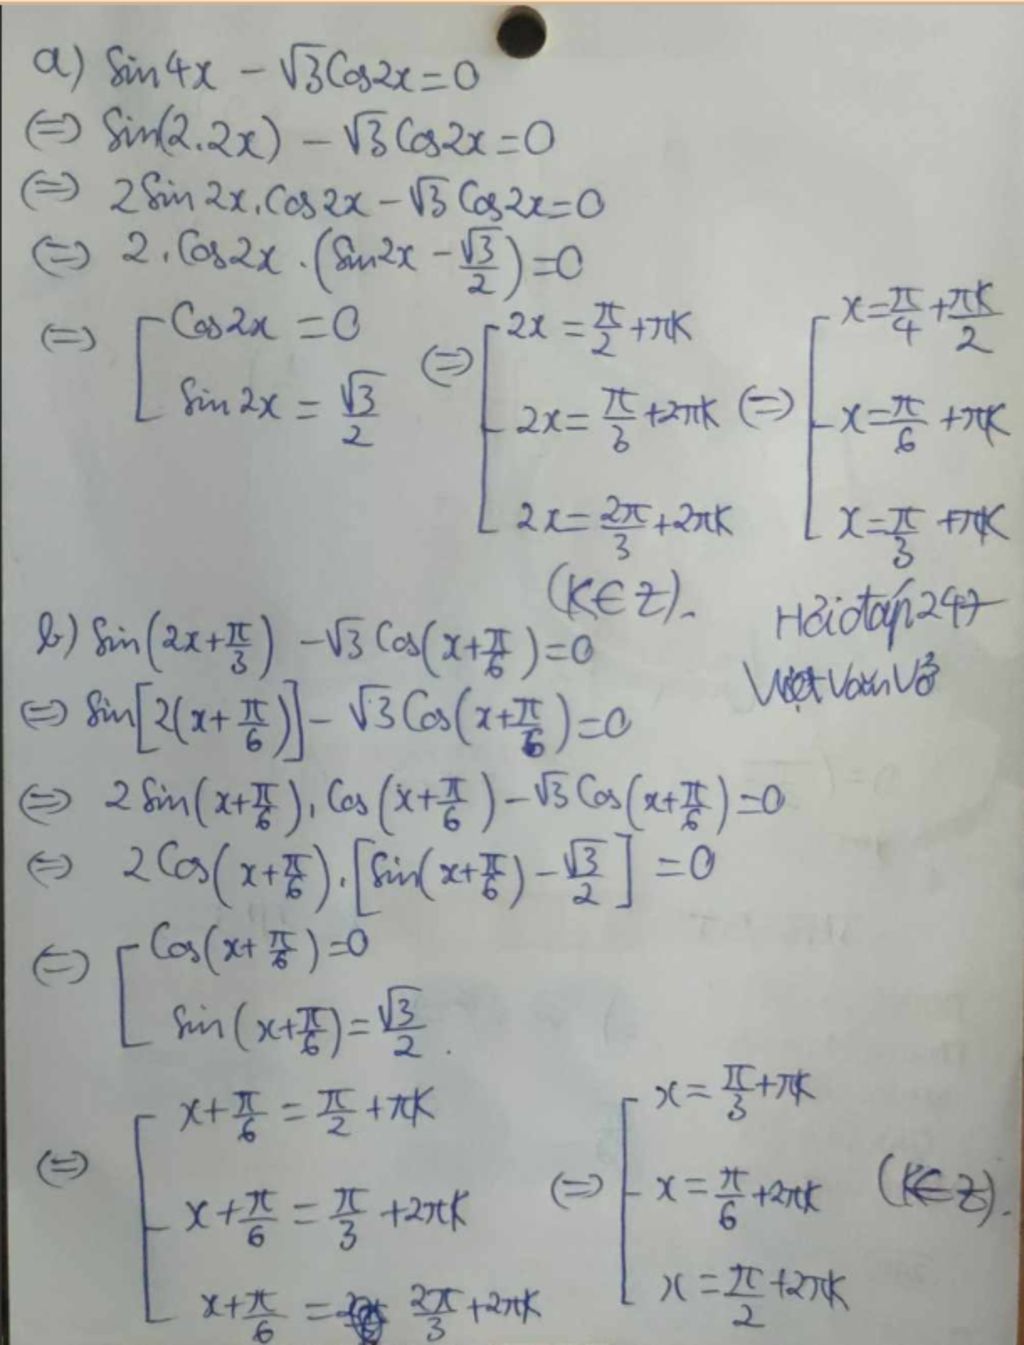 a) Sin4x - √3Cos2x=0
(=) Sin(2.2x) - √3Cos2x=0
(=) 2Sin2x.Cos2x - √3Cos2x=0
(=) 2.Cos2x.(Sin2x - √3/2)=0
(=) [ Cos2x = 0
Sin2x = √3/2
(=) [ 2x = π/2 + πK
2x = π/3 + 2πK
2x = 2π/3 + 2πK
(=) [ x = π/4 + πK/2
x = π/6 + πK
x = π/3 + πK
(K∈Z).
Hỏiđáp247
b) Sin(2x+π/3) - √3Cos(x+π/6)=0
(=) Sin[2(x+π/6)] - √3Cos(x+π/6)=0
(=) 2Sin(x+π/6).Cos(x+π/6) - √3Cos(x+π/6)=0
(=) 2Cos(x+π/6).[Sin(x+π/6) - √3/2] = 0
(=) [ Cos(x+π/6)=0
Sin(x+π/6)=√3/2.
(=) [ x+π/6 = π/2 + πK
x+π/6 = π/3 + 2πK
x+π/6 = 2π/3 + 2πK
(=) [ x = π/3 + πK
x = π/6 + 2πK
x = π/2 + 2πK
(K∈Z).